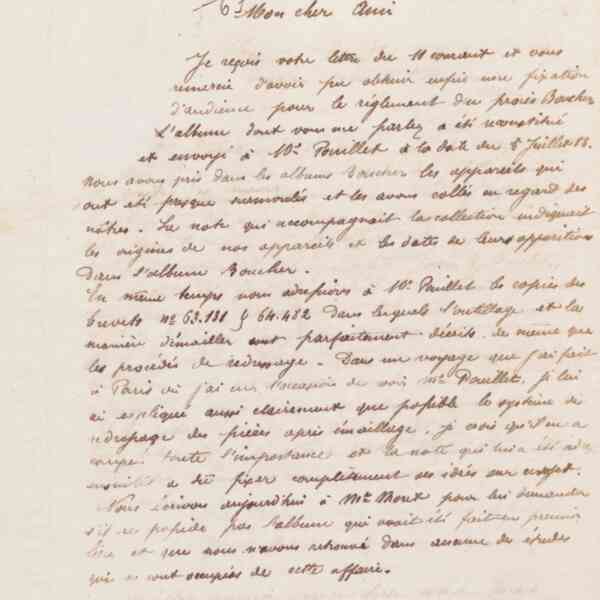 Mon cher Ami
Je reçois votre lettre du 11 courant et vous
remercie d'avoir pu obtenir enfin une fixation
d'audience pour le règlement du procès Boucher
L'album dont vous me parlez a été reconstitué
et envoyé à Mr. Pouillet à la date du 5 Juillet 18.
Nous avons pris dans les albums Boucher les appareils qui
ont été presque surmoulés et les avons collés en regard des
nôtres. La note qui accompagnait la collection indiquait
les origines de nos appareils et les dates de leurs apparition
dans l'album Boucher.
En même temps nous adressions à Mr. Pouillet les copies des
brevets no 63.131 § 64.482 dans lesquels l'outillage et la
manière d'émailler sont parfaitement décrits, de même que
les procédés de redressage. Dans un voyage que j'ai fait
à Paris où j'ai eu l'occasion de voir Mr. Pouillet, je lui
ai expliqué aussi clairement que possible le système de
redressage des pièces après émaillage, je crois qu'il en a
compris toute l'importance et la note qui lui a été
a dû fixer complètement ses idées sur ce sujet.
Nous écrivons aujourd'hui à Mr. pour lui demander
s'il ne possède pas l'album qui avait été fait en premier
lieu et que nous n'avons retrouvé dans aucune des études
qui se sont occupées de cette affaire.